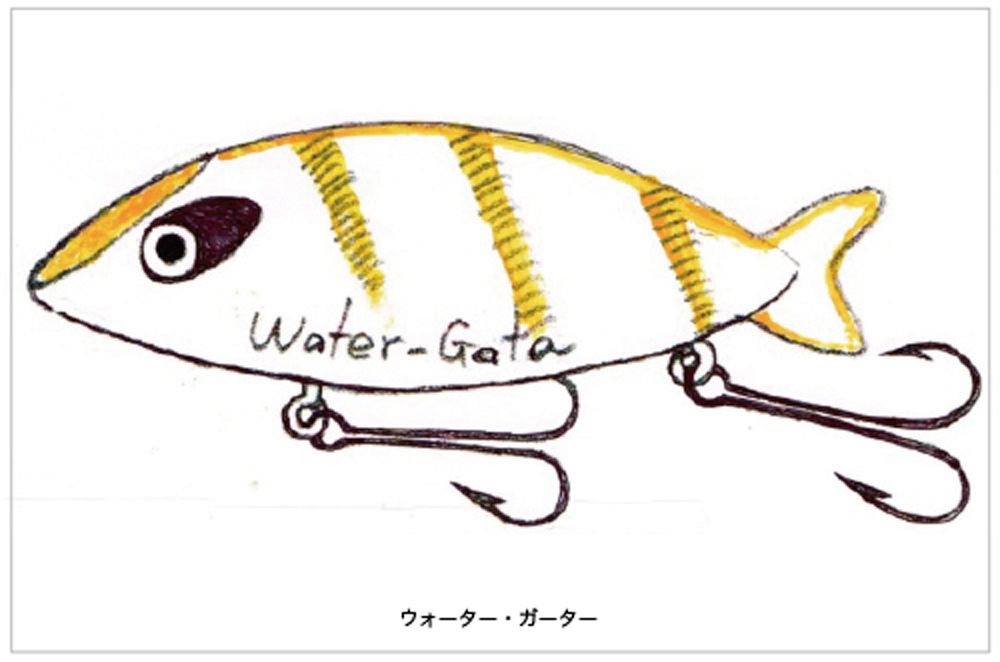 Water-Gata
ウォーター・ガーター